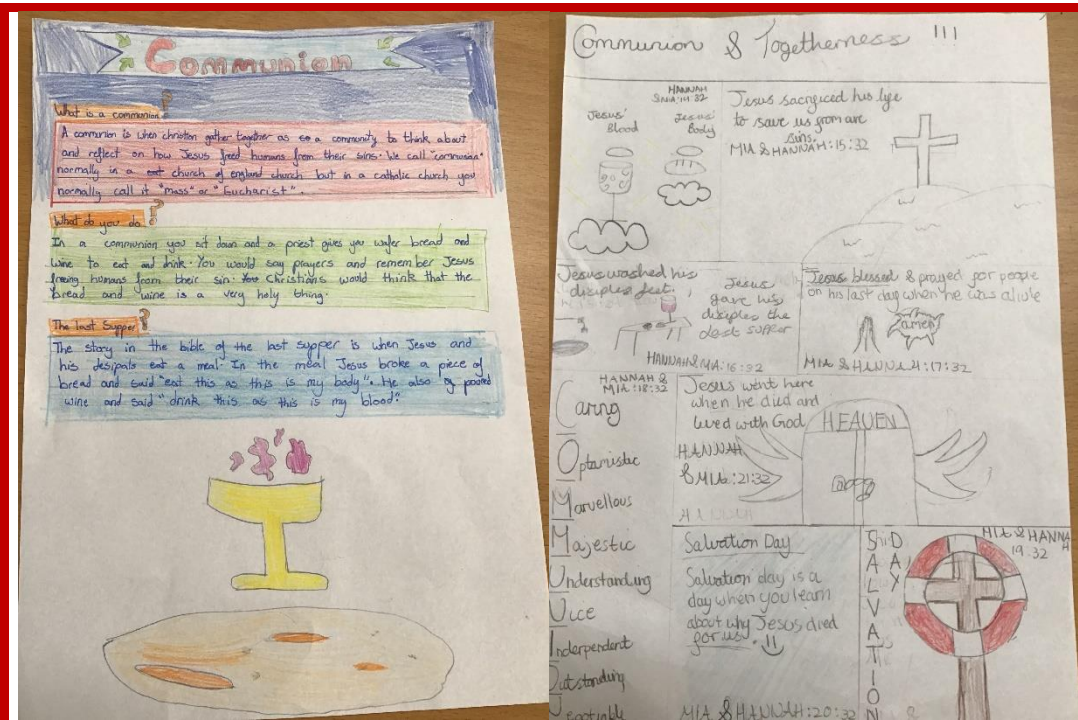 Communion
What is a communion?
A communion is when christian gather together as so a community to think about
and reflect on how Jesus freed humans from their sins. We call "communion"
normally in a church of england church but in a catholic church you
normally call it "mass" or "Eucharist".
What do you do?
In a communion you sit down and a priest gives you wafer bread and
wine to eat and drink. You would say prayers and remember Jesus
freeing humans from their sin. Christians would think that the
bread and wine is a very holy thing.
The last Supper?
The story in the bible of the last supper is when Jesus and
his desipals eat a meal. In the meal Jesus broke a piece of
bread and said "eat this as this is my body". He also poored
wine and said "drink this as this is my blood".
Communion & Togetherness !!!
HANNAH
& MIA:14:32
Jesus'
Blood
Jesus'
Body
Jesus sacrificed his life
to save us from are
sins
MIA & HANNAH:15:32
Jesus washed his
disciples feet.
Jesus
gave his
disciples the
last supper
HANNAH & MIA:16:32
Jesus blessed & prayed for people
on his last day when he was alive
amen
MIA & HANNAH:17:32
HANNAH &
MIA:18:32
Caring
Optamistic
Marvellous
Majestic
Understanding
Nice
Inderpendent
Outstanding
Negotiable
Jesus went here
when he died and
lived with God
HEAVEN
HANNAH
& MIA:21:32
HANNAH
Salvation Day
Salvation day is a
day when you learn
about why Jesus died
for us.
MIA & HANNAH:20:32
SALVATION
DAY
MIA & HANNAH
19.32